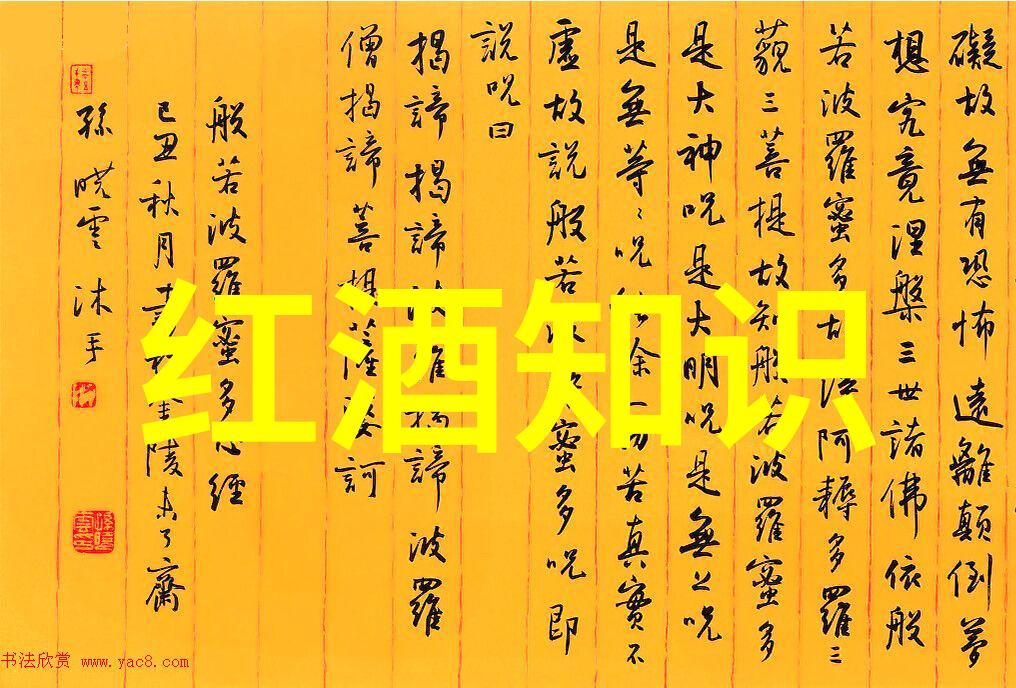 礙故無有恐怖遠離顛倒夢
想究竟涅槃三世諸佛依般
若波羅蜜多故得阿耨多羅三
藐三菩提故知般若波羅蜜多
是大神呪是大明呪是無上呪
是無等〻呪能除一切苦真實不
虛故說般若波羅蜜多呪即
說呪曰
揭諦揭諦波羅揭諦波羅
僧揭諦菩提薩婆訶
般若波羅蜜多心經
己丑秋月金陵未了齋
孫曉雲沐手
红酒知识
书法欣赏 www.yac8.com